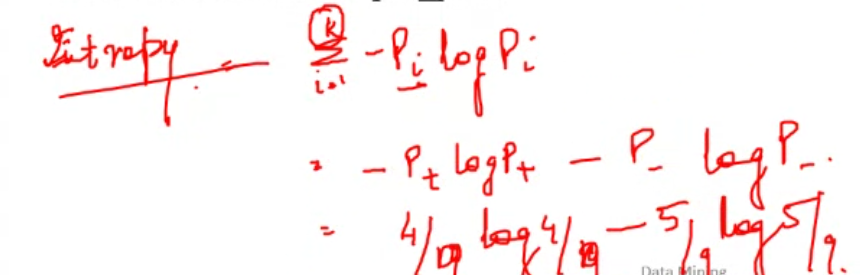 Entropy = Σ_{i=1}^{k} -P_i log P_i
= - P_+ log P_+ - P_- log P_-.
= 4/9 log 4/9 - 5/9 log 5/9.
Data Mining